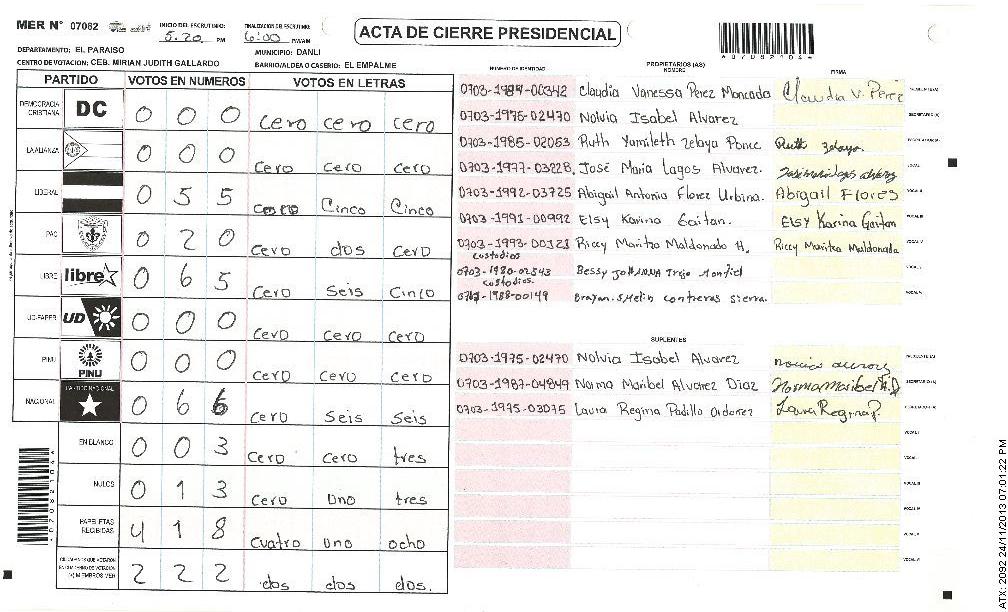 MER N° 07082
INICIO DEL ESCRUTINIO: 5:20 PM
FINALIZACION DEL ESCRUTINIO: 6:00 PM/AM
ACTA DE CIERRE PRESIDENCIAL
DEPARTAMENTO: EL PARAISO
MUNICIPIO: DANLI
CENTRO DE VOTACION: CEB. MIRIAN JUDITH GALLARDO
BARRIO/ALDEA O CASERIO: EL EMPALME
PARTIDO VOTOS EN NUMEROS VOTOS EN LETRAS
DEMOCRACIA CRISTIANA DC 0 0 0 Cero cero cero
LA ALIANZA 0 0 0 Cero Cero Cero
LIBERAL 0 5 5 Cero Cinco Cinco
PAC 0 2 0 Cero dos Cero
LIBRE libre 0 6 5 Cero Seis Cinco
UD-FAPER UD 0 0 0 Cero Cero Cero
PINU PINU 0 0 0 Cero Cero Cero
NACIONAL PARTIDO NACIONAL 0 6 6 Cero Seis Seis
EN BLANCO 0 0 3 Cero Cero tres
NULOS 0 1 3 Cero Uno tres
PAPELETAS RECIBIDAS 4 1 8 Cuatro Uno ocho
CIUDADANOS QUE VOTARON EN CUADERNO DE VOTACION (+) MIEMBROS MER 2 2 2 dos dos dos.
NUMERO DE IDENTIDAD PROPIETARIOS (AS) NOMBRE FIRMA
0703-1989-00342 Claudia Vanessa Perez Moncada Claudia V. Perez PRESIDENTE(A)
0703-1975-02470 Nolvia Isabel Alvarez SECRETARIO (A)
0703-1986-02053 Ruth Yamileth Zelaya Ponce Ruth Zelaya. ESCRUTADOR(A)
0703-1977-03228 José Maria Lagos Alvarez. VOCAL I
0703-1992-03725 Abigail Antonia Florez Urbina. Abigail Flores VOCAL II
0703-1991-00992 Elsy Karina Gaitan. Elsy Karina Gaitan VOCAL III
0703-1993-00121 Riccy Maritza Maldonado H. Riccy Maritza Maldonado VOCAL IV
custodios
0703-1980-02843 Bessy Johanna Trejo Montiel VOCAL V
custodios.
0703-1988-00149 Brayan. Smelin contreras sierra. VOCAL VI
SUPLENTES
0703-1975-02470 Nolvia Isabel Alvarez PRESIDENTE (A)
0703-1987-04849 Norma Maribel Alvarez Diaz Norma Maribel A. D SECRETARIO (A)
0703-1975-03075 Laura Regina Padillo Ordoñez Laura Regina P. ESCRUTADOR (A)
VOCAL I
VOCAL II
VOCAL III
VOCAL IV
VOCAL V
VOCAL VI
ATX: 2092 24/11/2013 07:01:22 PM